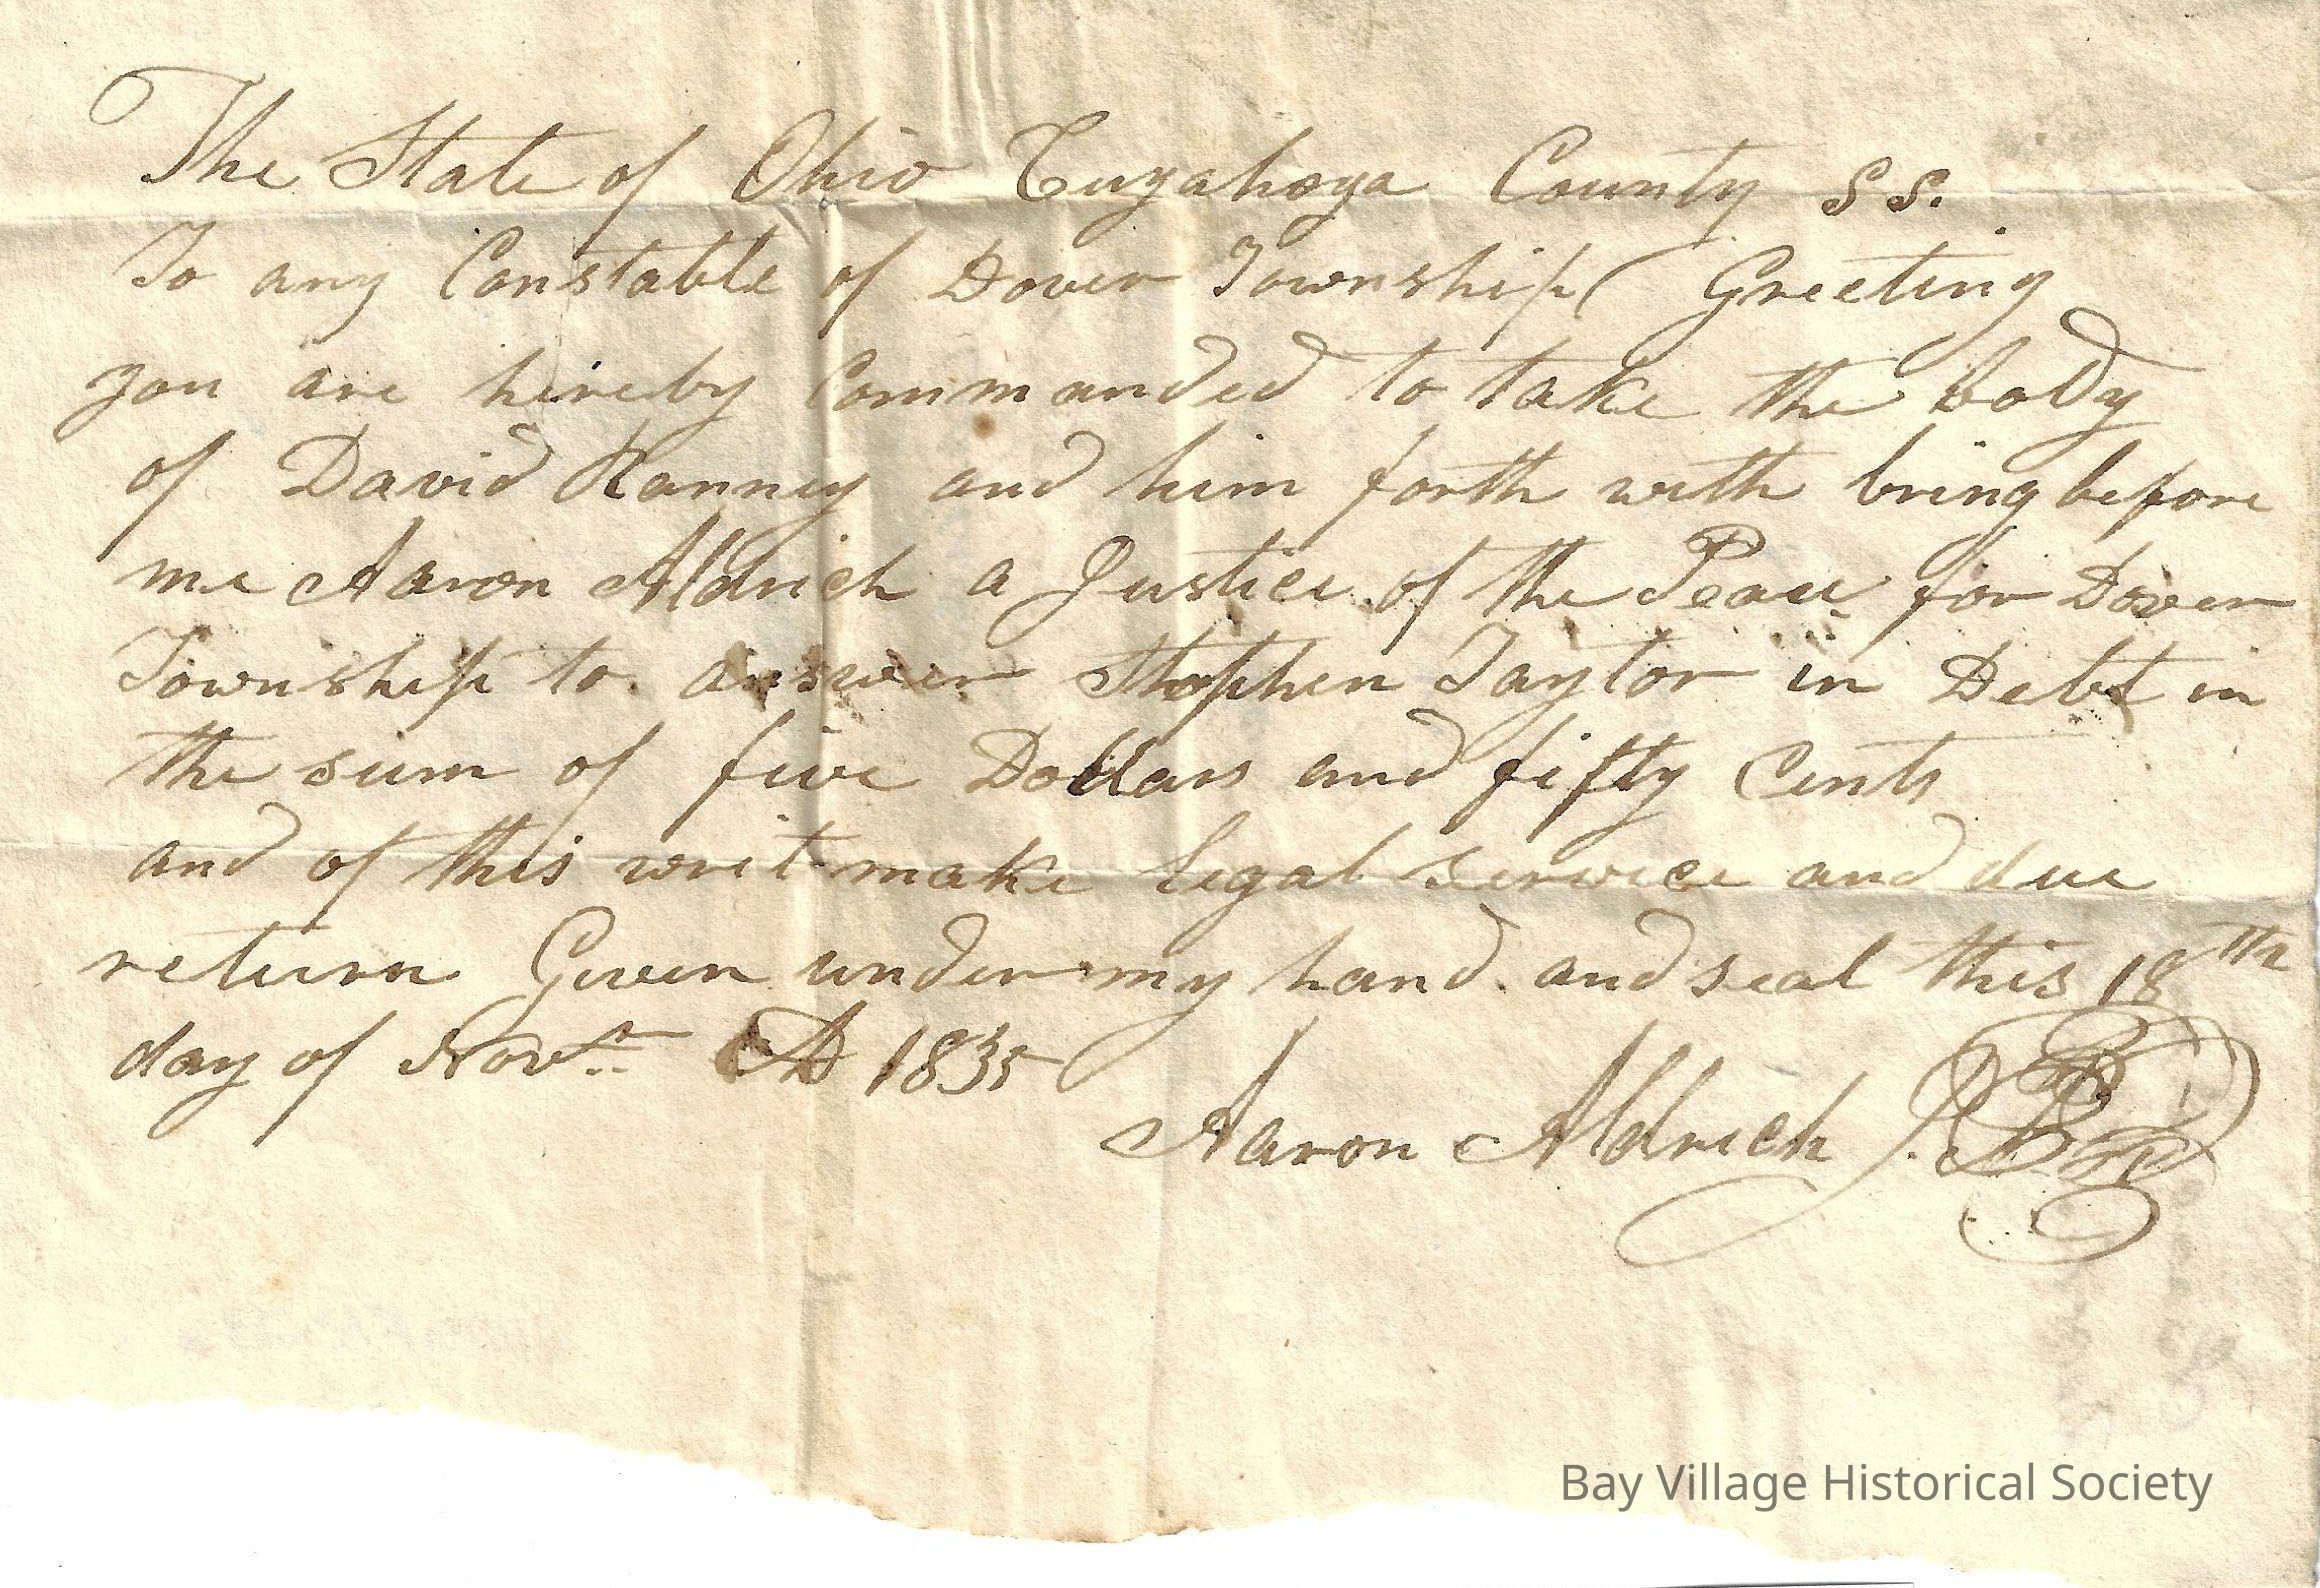 The State of Ohio Cuyahoga County SS.
To any Constable of Dover Township Greeting
you are hereby Commanded to take the body
of David Ranney and him forth with bring before
me Aaron Aldrich a Justice of the Peace for Dover
Township to answer Stephen Taylor in Debt in
the sum of five Dollars and fifty Cents
and of this writ make legal service and due
return Given under my hand and seal this 18th
day of Novr. AD 1835
Aaron Aldrich J.
Bay Village Historical Society